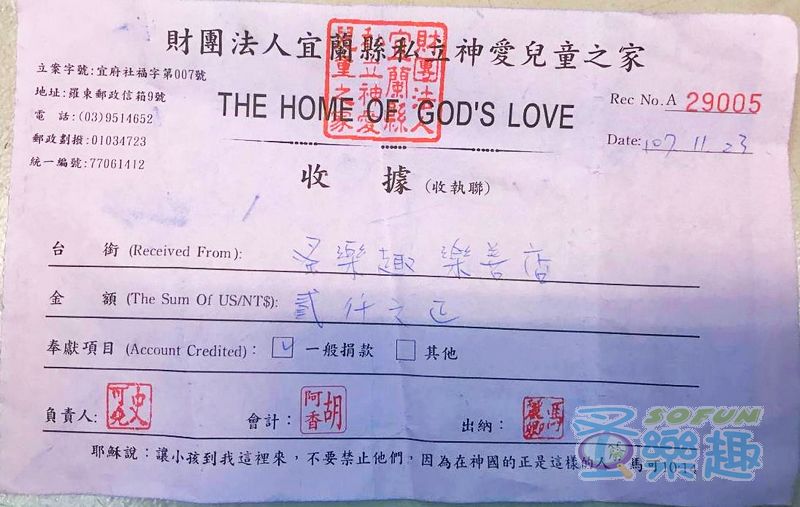 財團法人宜蘭縣私立神愛兒童之家
財團法人
宜蘭縣
私立神愛
兒童之家
立案字號:宜府社福字第007號
地址:羅東郵政信箱9號
電 話:(03)9514652
郵政劃撥:01034723
統一編號:77061412
THE HOME OF GOD'S LOVE
Rec No. A 29005
Date: 107. 11. 23
收 據 (收執聯)
台 銜 (Received From): 圣樂趣 樂善店
金 額 (The Sum Of US/NT$): 貳仟文正
奉獻項目 (Account Credited): 一般捐款 其他
負責人: 會計: 胡阿香 出納:
耶穌說:讓小孩到我這裡來,不要禁止他們,因為在神國的正是這樣的人。馬可10:14
SOFUN
圣樂趣